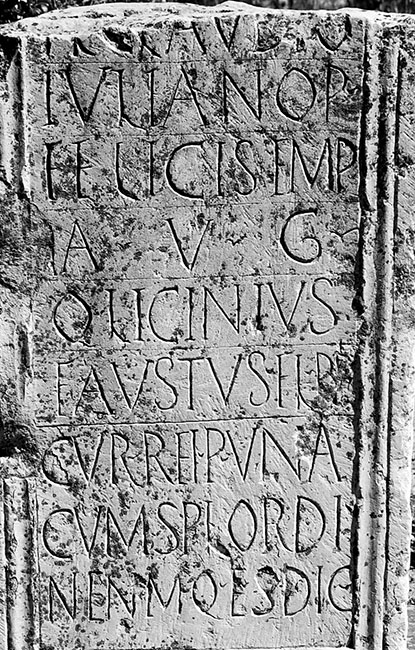 CLAVDIO
IVLIANO P
FELICI SEMP
A V G
Q LICINIVS
FAVSTVS FL PP
CVR REI P VNA
CVM SPL ORDI
NE N M Q ES DIC